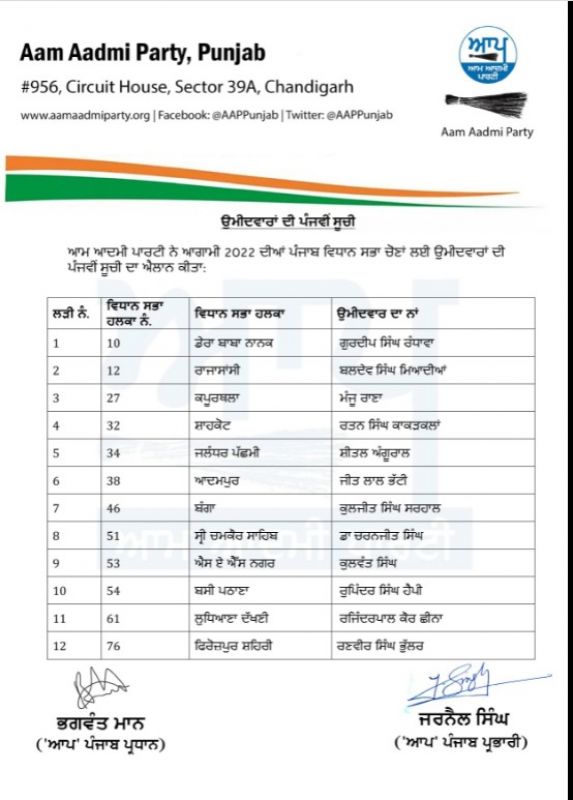 Aam Aadmi Party, Punjab
#956, Circuit House, Sector 39A, Chandigarh
www.aamaadmiparty.org | Facebook: @AAPPunjab | Twitter: @AAPPunjab
ਆਪ
ਆਮ ਆਦਮੀ
ਪਾਰਟੀ
Aam Aadmi Party
ਉਮੀਦਵਾਰਾਂ ਦੀ ਪੰਜਵੀਂ ਸੂਚੀ
ਆਮ ਆਦਮੀ ਪਾਰਟੀ ਨੇ ਆਗਾਮੀ 2022 ਦੀਆਂ ਪੰਜਾਬ ਵਿਧਾਨ ਸਭਾ ਚੋਣਾਂ ਲਈ ਉਮੀਦਵਾਰਾਂ ਦੀ
ਪੰਜਵੀਂ ਸੂਚੀ ਦਾ ਐਲਾਨ ਕੀਤਾ:
ਲੜੀ ਨੰ. ਵਿਧਾਨ ਸਭਾ ਹਲਕਾ ਨੰ. ਵਿਧਾਨ ਸਭਾ ਹਲਕਾ ਉਮੀਦਵਾਰ ਦਾ ਨਾਂ
1 10 ਡੇਰਾ ਬਾਬਾ ਨਾਨਕ ਗੁਰਦੀਪ ਸਿੰਘ ਰੰਧਾਵਾ
2 12 ਰਾਜਾਸਾਂਸੀ ਬਲਦੇਵ ਸਿੰਘ ਮਿਆਦੀਆਂ
3 27 ਕਪੂਰਥਲਾ ਮੰਜੂ ਰਾਣਾ
4 32 ਸ਼ਾਹਕੋਟ ਰਤਨ ਸਿੰਘ ਕਾਕੜਕਲਾਂ
5 34 ਜਲੰਧਰ ਪੱਛਮੀ ਸ਼ੀਤਲ ਅੰਗੂਰਾਲ
6 38 ਆਦਮਪੁਰ ਜੀਤ ਲਾਲ ਭੱਟੀ
7 46 ਬੰਗਾ ਕੁਲਜੀਤ ਸਿੰਘ ਸਰਹਾਲ
8 51 ਸ੍ਰੀ ਚਮਕੌਰ ਸਾਹਿਬ ਡਾ ਚਰਨਜੀਤ ਸਿੰਘ
9 53 ਐਸ ਏ ਐੱਸ ਨਗਰ ਕੁਲਵੰਤ ਸਿੰਘ
10 54 ਬਸੀ ਪਠਾਣਾ ਰੁਪਿੰਦਰ ਸਿੰਘ ਹੈਪੀ
11 61 ਲੁਧਿਆਣਾ ਦੱਖਣੀ ਰਜਿੰਦਰਪਾਲ ਕੌਰ ਛੀਨਾ
12 76 ਫਿਰੋਜ਼ਪੁਰ ਸ਼ਹਿਰੀ ਰਣਵੀਰ ਸਿੰਘ ਭੁੱਲਰ
ਭਗਵੰਤ ਮਾਨ
('ਆਪ' ਪੰਜਾਬ ਪ੍ਰਧਾਨ)
ਜਰਨੈਲ ਸਿੰਘ
('ਆਪ' ਪੰਜਾਬ ਪ੍ਰਭਾਰੀ)